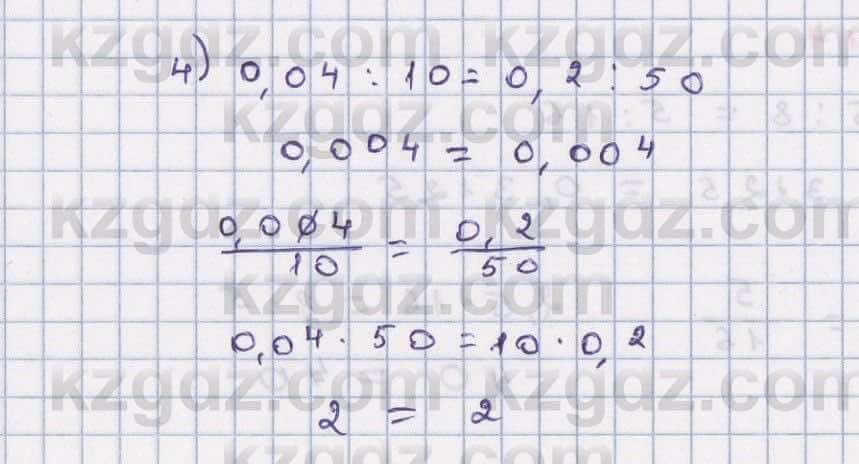 kzgdz.com kzgdz.com
4) 0,04 : 10 = 0,2 : 50
kzgdz.com
0,004 = 0,004
kzgdz.com kzgdz.com
0,004/10 = 0,2/50
kzgdz.com
0,04 · 50 = 10 · 0,2
kzgdz.com kzgdz.com
2 = 2
kzgdz.com